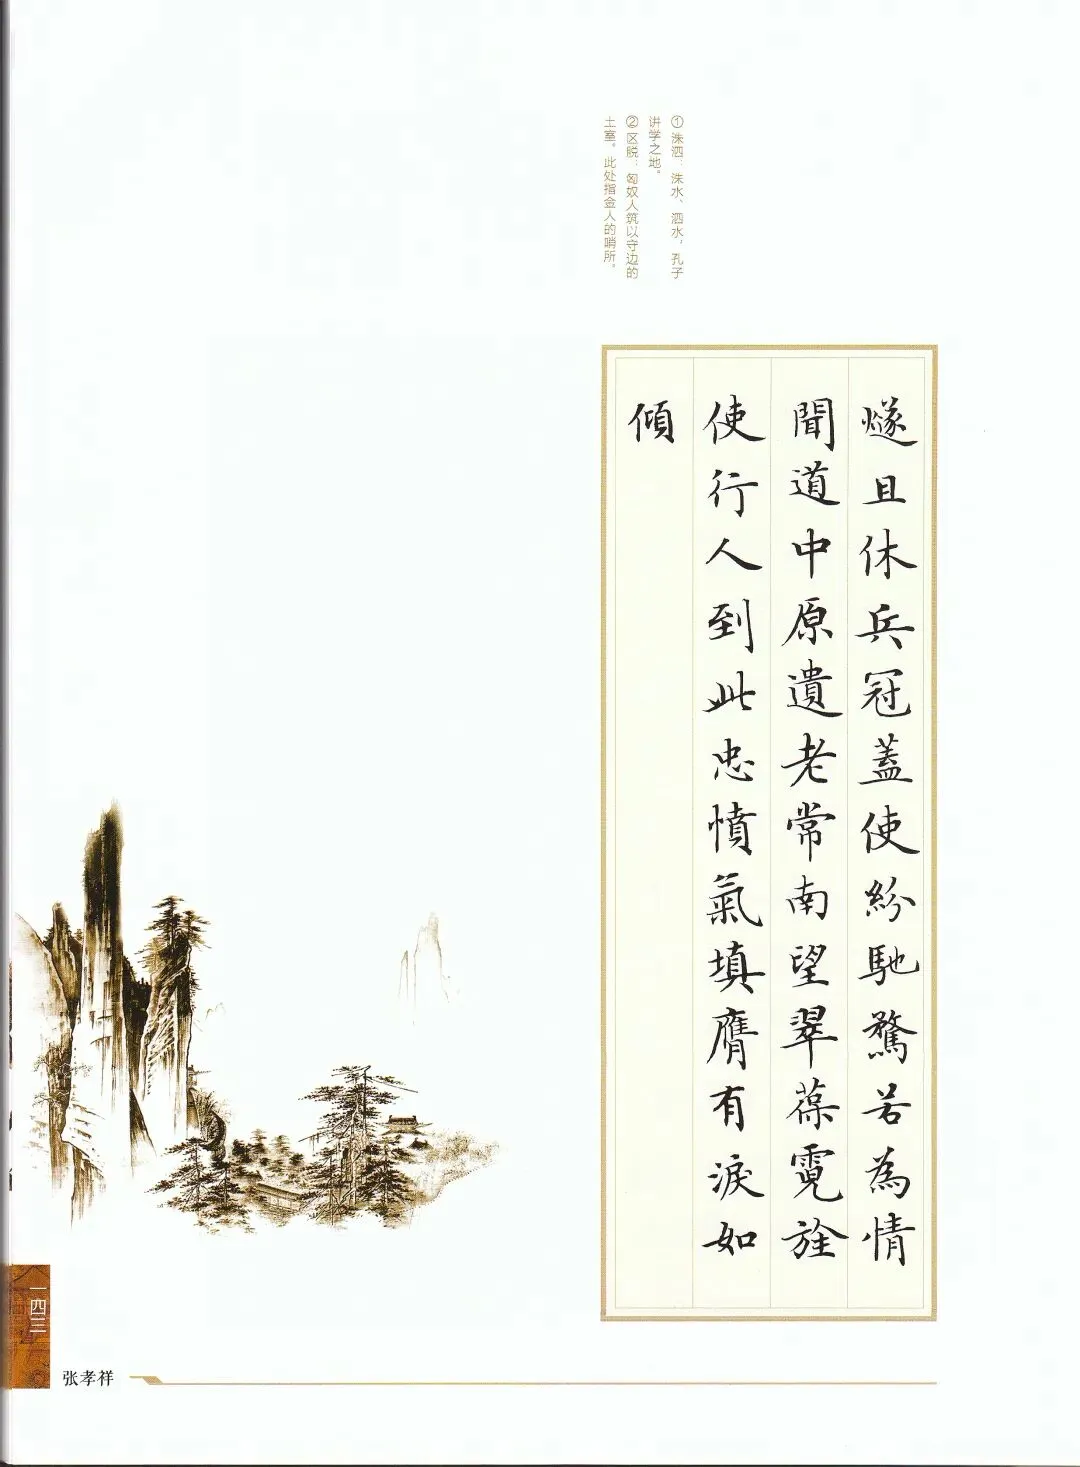 ①洙泗：洙水、泗水，孔子
讲学之地。
②区脱：匈奴人筑以守边的
土室。此处指金人的哨所。
燧且休兵冠蓋使紛馳騖若為情
聞道中原遺老常南望翠葆霓旌
使行人到此忠憤氣填膺有淚如
傾
一四三
张孝祥